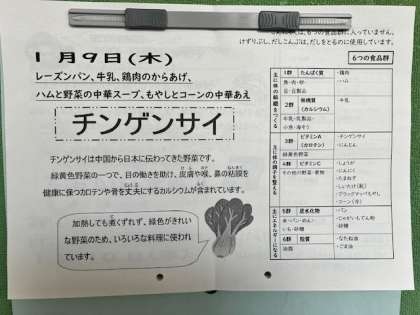 は、6つの食品群に入っていません。
けずりぶし、だしこんぶは、だしをとるのに使用しています。
1月9日(木)
レーズンパン、牛乳、鶏肉のからあげ、
ハムと野菜の中華スープ、もやしとコーンの中華あえ
チンゲンサイ
チンゲンサイは中国から日本に伝わってきた野菜です。
緑黄色野菜の一つで、目の働きを助け、皮膚や喉、鼻の粘膜を
健康に保つカロテンや骨を丈夫にするカルシウムが含まれています。
加熱しても煮くずれず、緑色がきれい
な野菜のため、いろいろな料理に使われ
ています。
6つの食品群
主に体の組織をつくる
1群 たんぱく質
魚・肉・卵・
豆・豆製品
・鶏肉
・ハム
2群 無機質
(カルシウム)
牛乳・乳製品・
小魚・海そう
・牛乳
主に体の調子を整える
3群 ビタミンA
(カロテン)
緑黄色野菜
・チンゲンサイ
・にんじん
4群 ビタミンC
その他の野菜・果物
・しょうが
・にんにく
・たまねぎ
・しいたけ(乾)
・ブラックマッペもやし
・コーン(冷)
主にエネルギーになる
5群 炭水化物
米・パン・めん・
いも・砂糖
・パン
・じゃがいもでん粉
・砂糖
6群 脂質
油脂
・なたね油
・ごま油